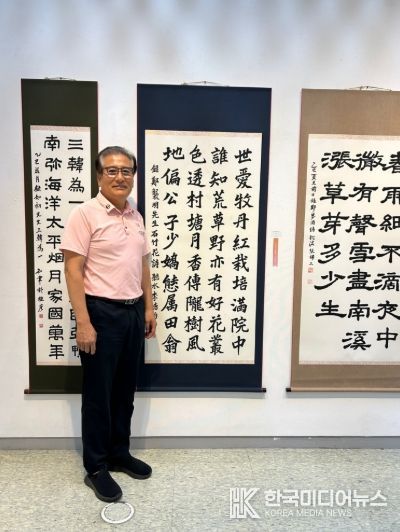 三韓為一
南弥海洋太平烟月家國萬年
世愛牧丹紅栽培滿院中
誰知荒草野亦有好花叢
色透村塘月香傳隴樹風
地偏公子少嬌態屬田翁
錄鄭襲明先生石竹花詩
春雨細不滴夜中
微有聲雪盡南溪
漲草芽多少生
한국미디어뉴스
KOREA MEDIA NEWS